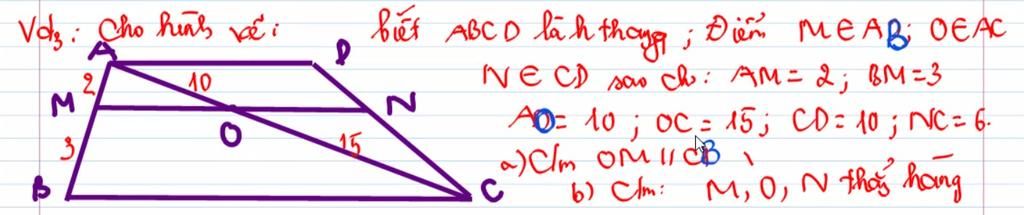 Vd3: Cho hình vẽ: biết ABCD là hthang; Điểm M∈AB; O∈AC
N∈CD sao cho: AM = 2; BM = 3
AO = 10; OC = 15; CD = 10; NC = 6.
a) C/m OM // CB
b) C/m: M, O, N thẳng hàng
A D
2 10
M N
O
3 15
B C